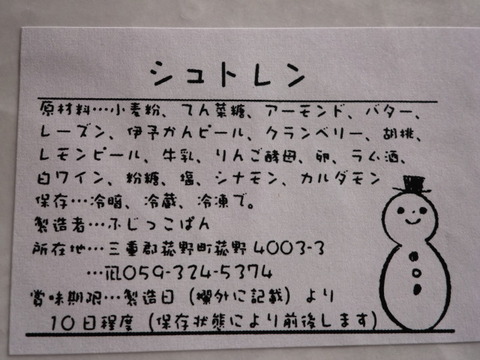 シュトレン
原材料…小麦粉、てん菜糖、アーモンド、バター、
レーズン、伊予かんピール、クランベリー、胡桃、
レモンピール、牛乳、りんご酵母、卵、ラム酒、
白ワイン、粉糖、塩、シナモン、カルダモン
保存…冷暗、冷蔵、冷凍で。
製造者…ふじっこぱん
所在地…三重郡菰野町菰野4003-3
…℡059-324-5374
賞味期限…製造日（欄外に記載）より
10日程度（保存状態により前後します）